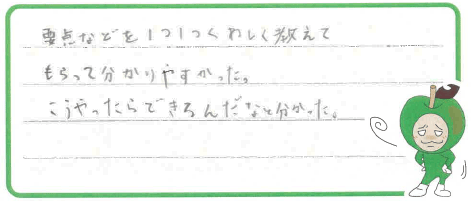 要点などを1つ1つくわしく教えて
もらって分かりやすかった。
こうやったらできるんだなと分かった。